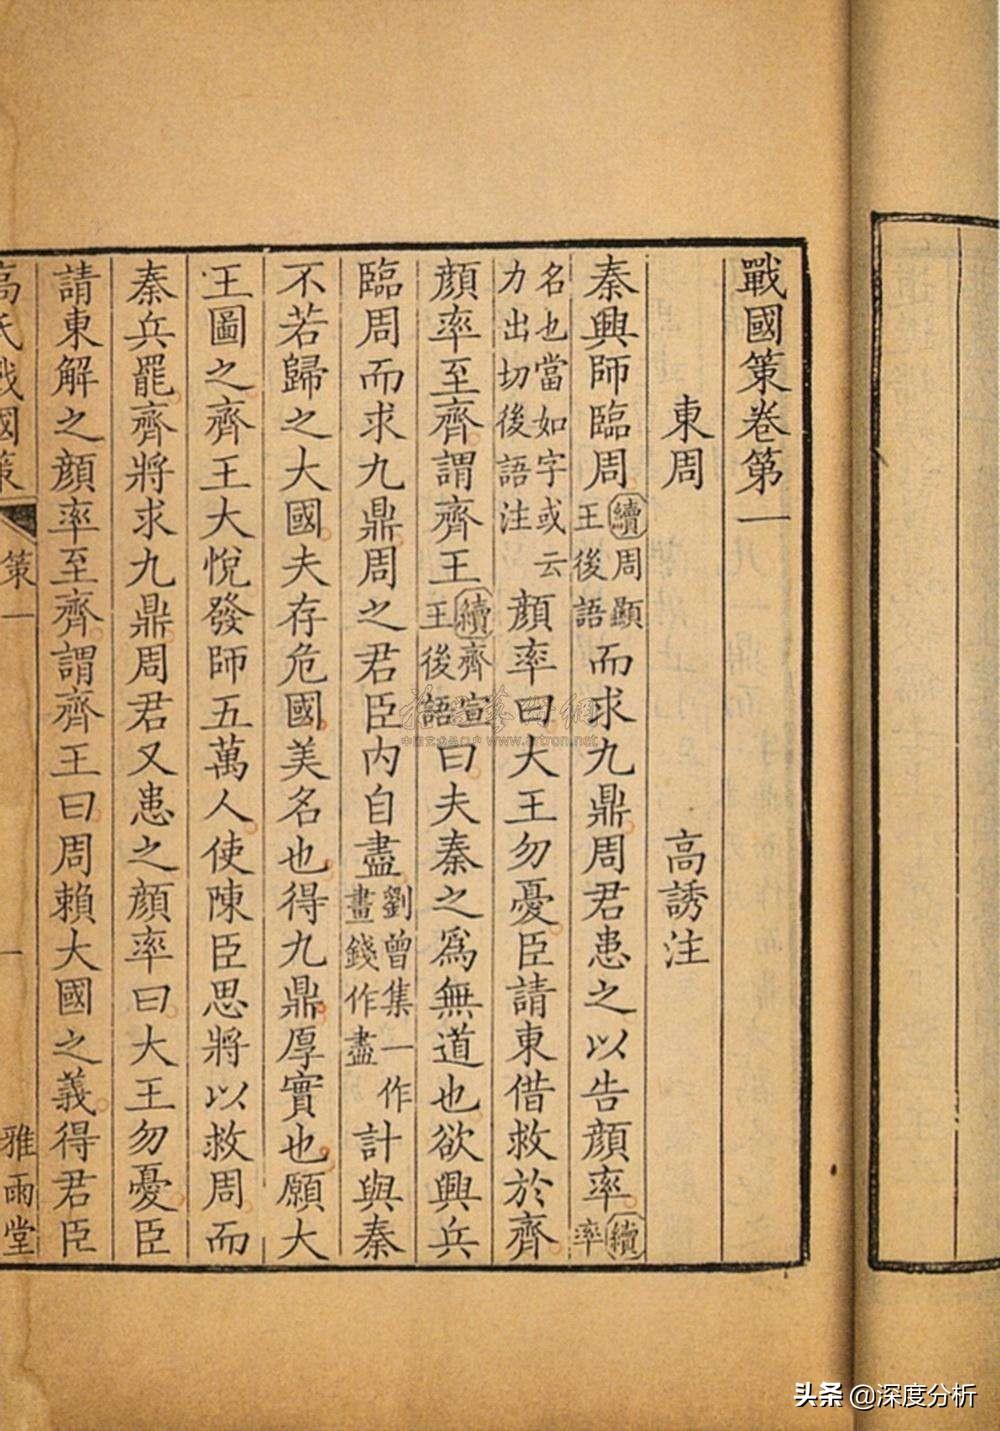 戰國策卷第一
東周 高誘注
秦興師臨周續周顯王後語而求九鼎周君患之以告顏率續率
名也當如字或云力出切後語注顏率曰大王勿憂臣請東借救於齊
顏率至齊謂齊王續齊宣王後語曰夫秦之爲無道也欲興兵
臨周而求九鼎周之君臣內自盡劉曾集一作畫錢作盡計與秦
不若歸之大國夫存危國美名也得九鼎厚實也願大
王圖之齊王大悅發師五萬人使陳臣思將以救周而
秦兵罷齊將求九鼎周君又患之顏率曰大王勿憂臣
請東解之顏率至齊謂齊王曰周賴大國之義得君臣
高氏戰國策 策一 一 雅雨堂
www.artron.net
头条 @深度分析